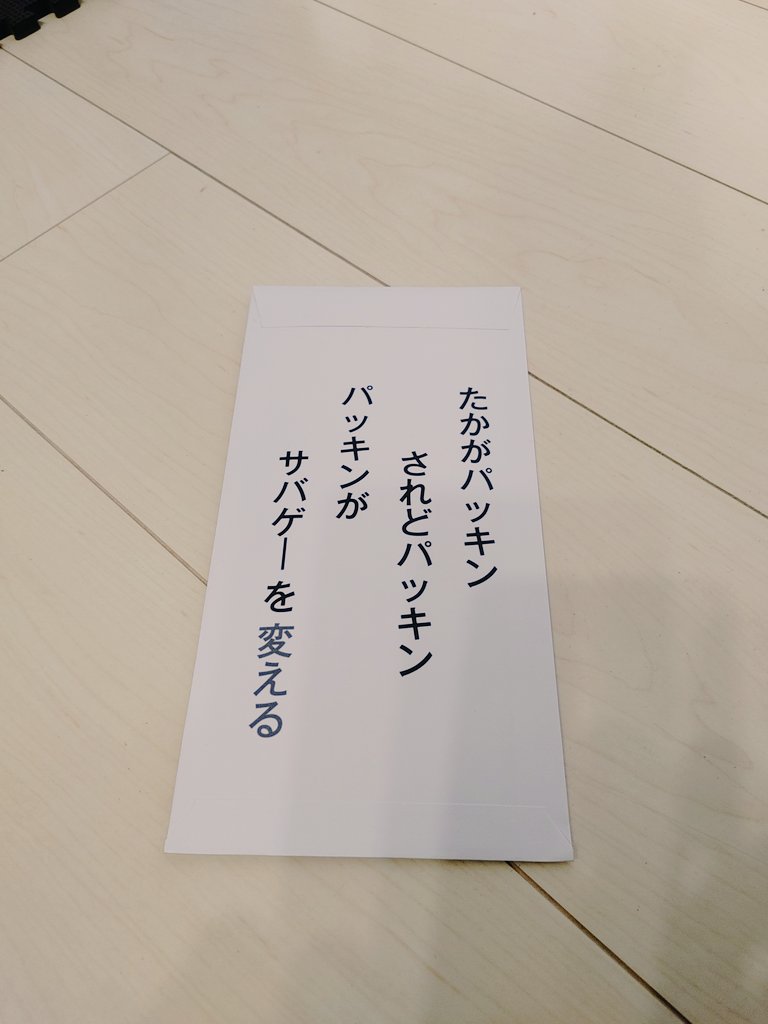 たかがパッキン
されどパッキン
パッキンが
サバゲーを変える